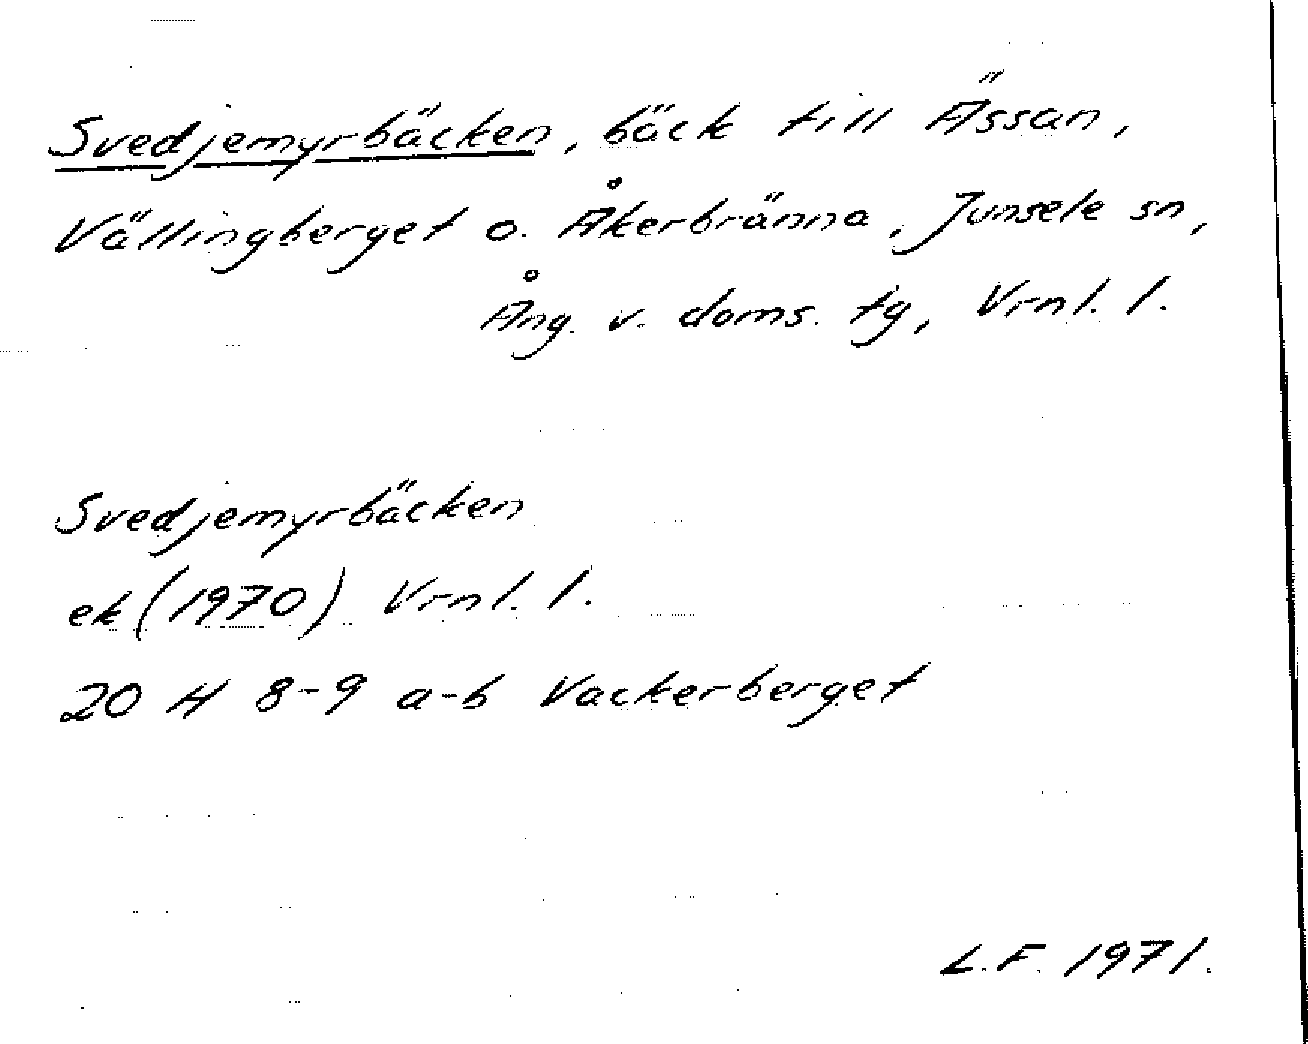 Svedjemyrbäcken, bäck till Ässan,
Vällingberget o. Åkerbränna, Junsele sn,
Ång. v. doms. tg, Vrnl. l.
Svedjemyrbäcken
ek (1970) Vrnl. l.
20 H 8-9 a-b Vackerberget
L.F. 1971.